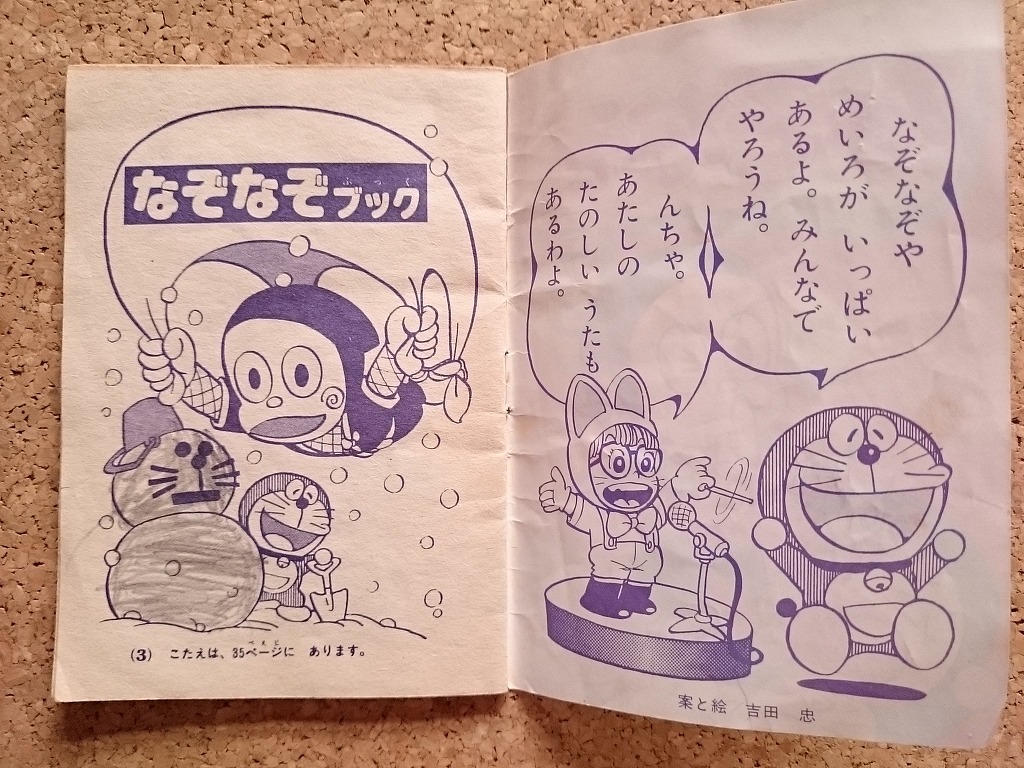 なぞなぞや
めいろが いっぱい
あるよ。みんなで
やろうね。
んちゃ。
あたしの
たのしい うたも
あるわよ。
案と絵 吉田 忠
なぞなぞブック
(3) こたえは、35ページに あります。